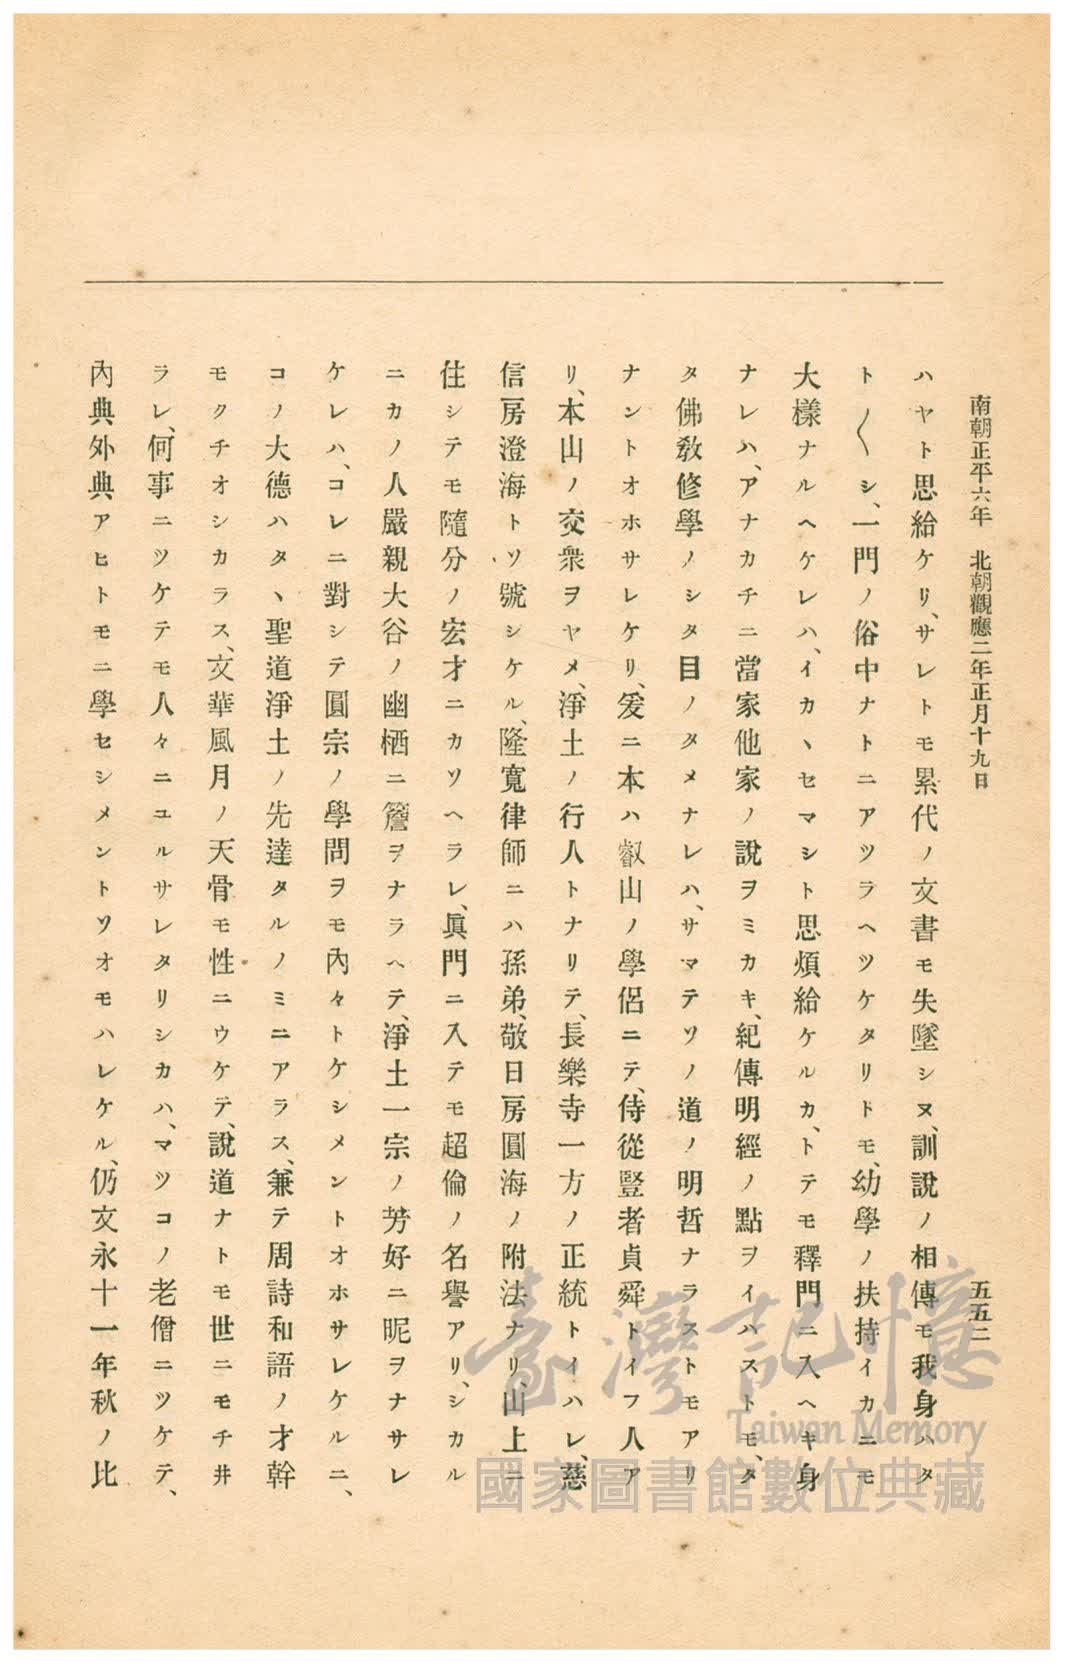 南朝正平六年　北朝觀應二年正月十九日
五五二
ハヤト思給ケリ、サレトモ累代ノ文書モ失墜シヌ、訓說ノ相傳モ我身ハタ
ト〱シ、一門ノ俗中ナトニアツラヘツケタリトモ、幼學ノ扶持イカニモ
大樣ナルヘケレハ、イカヽセマシト思煩給ケルカ、トテモ釋門ニ入ヘキ身
ナレハ、アナカチニ當家他家ノ說ヲミカキ、紀傳明經ノ點ヲイハストモ、タ
タ佛敎修學ノシタ目ノタメナレハ、サマテソノ道ノ明哲ナラストモアリ
ナントオホサレケリ、爰ニ本ハ叡山ノ學侶ニテ、侍從豎者貞舜トイフ人ア
リ、本山ノ交衆ヲヤメ、淨土ノ行人トナリテ、長樂寺一方ノ正統トイハレ、慈
信房澄海トソ號シケル、隆寬律師ニハ孫弟、敬日房圓海ノ附法ナリ、山上ニ
住シテモ隨分ノ宏才ニカソヘラレ、眞門ニ入テモ超倫ノ名譽アリ、シカル
ニカノ人嚴親大谷ノ幽栖ニ簷ヲナラヘテ、淨土一宗ノ芳好ニ昵ヲナサレ
ケレハ、コレニ對シテ圓宗ノ學問ヲモ內々トケシメントオホサレケルニ、
コノ大德ハタヽ聖道淨土ノ先達タルノミニアラス、兼テ周詩和語ノ才幹
モクチオシカラス、文華風月ノ天骨モ性ニウケテ、說道ナトモ世ニモチ井
ラレ、何事ニツケテモ人々ニユルサレタリシカハ、マツコノ老僧ニツケテ、
內典外典アヒトモニ學セシメントソオモハレケル、仍文永十一年秋ノ比
臺灣記憶
Taiwan Memory
國家圖書館數位典藏